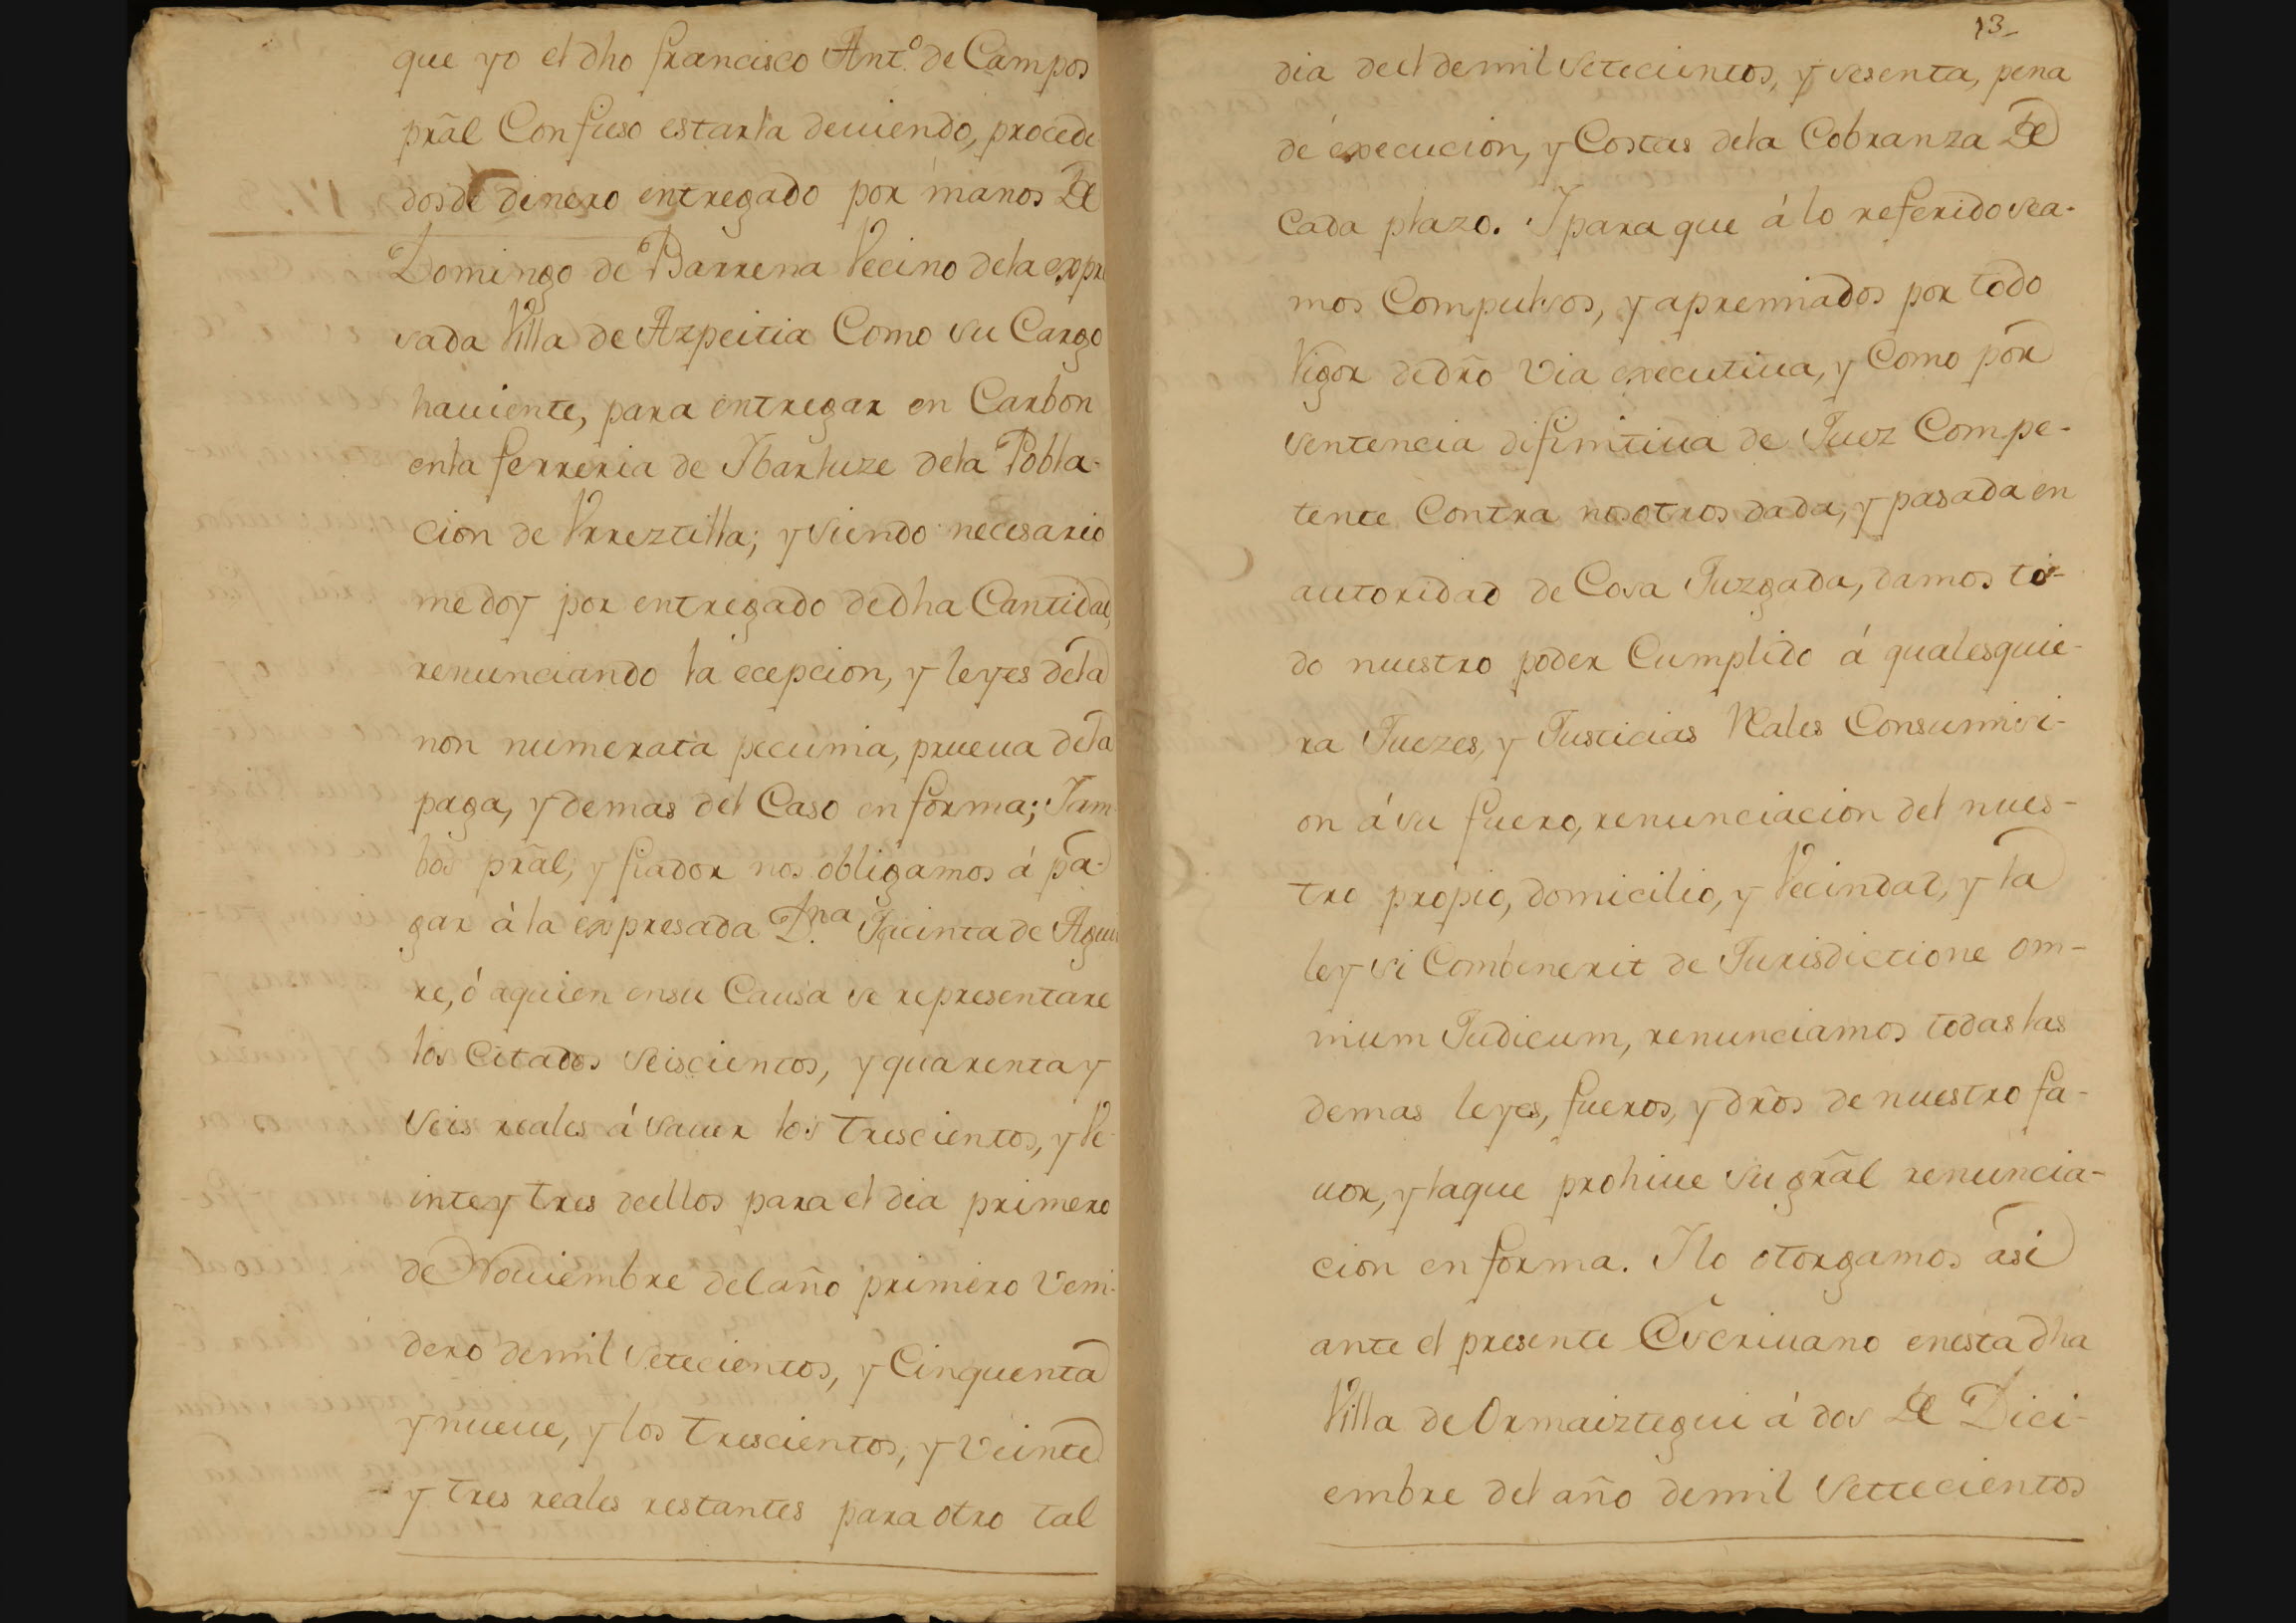 que yo el dho francisco Ant.º de Campos
prãl Confieso estarla deuiendo, procedi
dos de dinero entregado por manos De
Domingo de Barrena Vecino dela expre
sada Villa de Azpeitia Como su Cargo
hauiente, para entregar en Carbon
enla ferreria de Ibarluze dela Pobla-
cion de Vrreztilla; y siendo necesario
me doy por entregado dedha Cantidad,
renunciando la ecepcion, y leyes dela
non numerata pecunia, prueua dela
paga, y demas del Caso en forma; Iam
bos prãl, y fiador nos obligamos á pa-
gar à la expresada D.na Jacinta de Agui
re, ó aquien ensu Causa se representare
los Citados seiscientos, y quarenta y
seis reales á sauer los trescientos, y Ve-
inte y tres deellos para el dia primero
de Nouiembre del año primero Veni-
dero demil setecientos, y Cinquenta
y nueue, y los trescientos, y Veinte
y tres reales restantes para otro tal
13_
dia deel demil setecientos, y sesenta, pena
de execucion, y Costas dela Cobranza De
Cada plazo. I para que á lo referido sea-
mos Compulsos, y apremiados por todo
Vigor dedr̃o Via executiua, y Como por
sentencia difinitiua de Juez Compe-
tente Contra nosotros dada, y pasada en
autoridad de Cosa Juzgada, damos to-
do nuestro poder Cumplido á qualesquie-
ra Juezes, y Justicias Reales Consumisi-
on á su fuero, renunciacion del nues-
tro propio, domicilio, y Vecindad, y la
ley si Combenerit de Jurisdictione om-
nium Judicum, renunciamos todas las
demas leyes, fueros, y dr̃os de nuestro fa-
uor, y laque prohiue su gr̃al renuncia-
cion en forma. I lo otorgamos asi
ante el presente Escriuano enesta dha
Villa de Ormaiztegui á dos De Dici-
embre del año demil settecientos